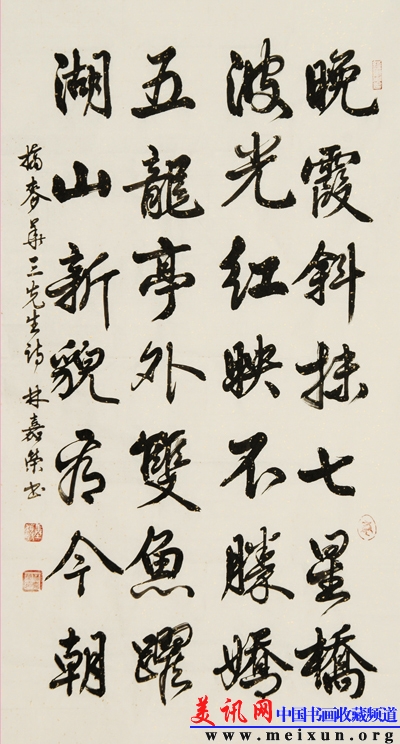 晚霞斜抹七星橋
波光紅映不勝嬌
五龍亭外雙魚躍
湖山新貌看今朝
摘麥華三先生詩 林嘉榮書
美讯网 中国书画收藏频道
www.meixun.org